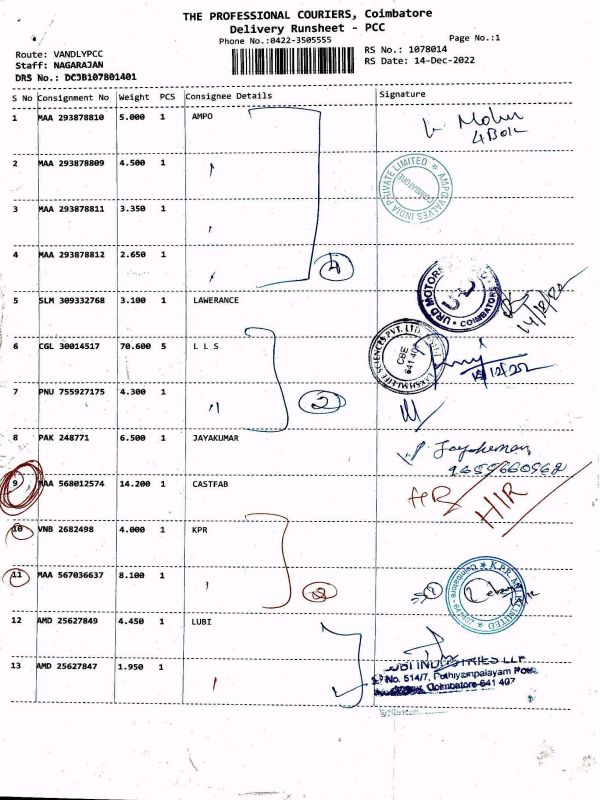 THE PROFESSIONAL COURIERS, Coimbatore
Delivery Runsheet - PCC
Phone No.:0422-3505555
Page No.:1
Route: VANDLYPCC
Staff: NAGARAJAN
DRS No.: DCJB107801401
RS No.: 1078014
RS Date: 14-Dec-2022
S No Consignment No Weight PCS Consignee Details Signature
1 MAA 293878810 5.000 1 AMPO
2 MAA 293878809 4.500 1 "
AMPO VALVES INDIA PRIVATE LIMITED COIMBATORE
3 MAA 293878811 3.350 1 "
4 MAA 293878812 2.650 1 "
4
URD MOTORS COIMBATORE
5 SLM 309332768 3.100 1 LAWERANCE
14/12/22
6 CGL 30014517 70.600 5 L L S
LAKSHMI LIFE SCIENCES PVT. LTD. CBE 641 407
7 PNU 755927175 4.300 1 "
2
8 PAK 248771 6.500 1 JAYAKUMAR
9 MAA 568012574 14.200 1 CASTFAB
HIR
10 VNB 2682498 4.000 1 KPR
11 MAA 567036637 8.100 1 "
2
12 AMD 25627849 4.450 1 LUBI
LUBI INDUSTRIES LLP
13 AMD 25627847 1.950 1 "
No. 514/7, Pothiyampalayam
Coimbatore 641 407